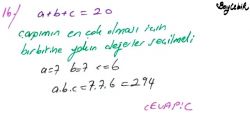 16) a+b+c=20
çarpımın en çok olması için
birbirine yakın değerler seçilmeli
a=7 b=7 c=6
a.b.c=7.7.6=294
CEVAP:C